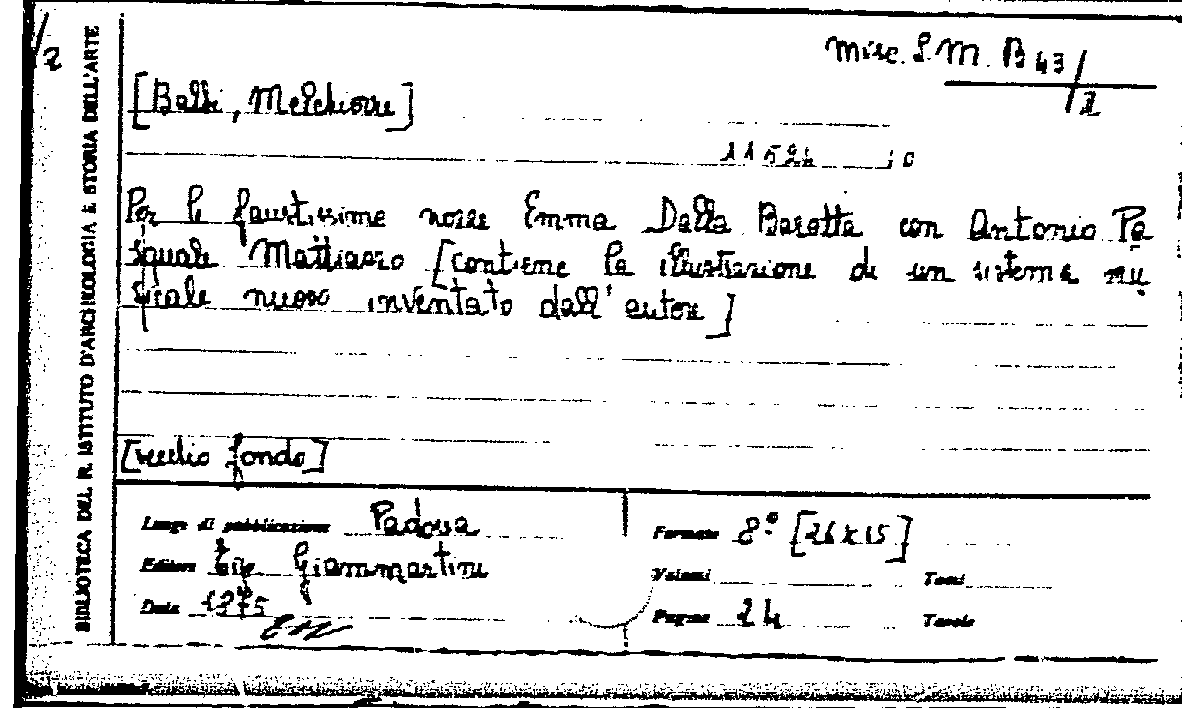 BIBLIOTECA DEL R. ISTITUTO D'ARCHEOLOGIA E STORIA DELL'ARTE
Misc. S. M. B 43/2
[Balbi, Melchiorre]
11524
Per le faustissime nozze Emma Dalla Baratta con Antonio Pa
squale Mattiazzo [contiene la illustrazione di un sistema mu
sicale nuovo inventato dall'autore]
[vecchio fondo]
Luogo di pubblicazione Padova
Formato 8.° [26x15]
Editore Giammartini
Volumi Tomi
Data
Pagine 24 Tavole